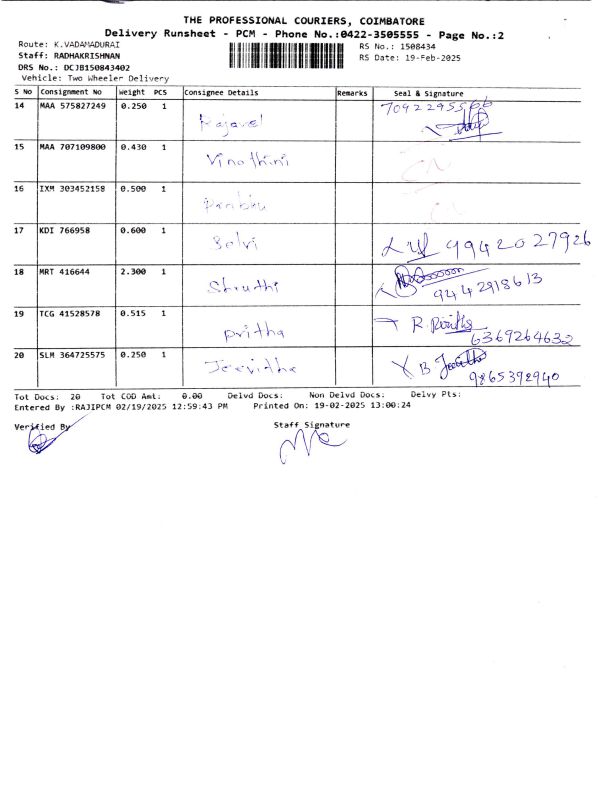 THE PROFESSIONAL COURIERS, COIMBATORE
Delivery Runsheet - PCM - Phone No.:0422-3505555 - Page No.:2
Route: K.VADAMADURAI
RS No.: 1508434
Staff: RADHAKRISHNAN
RS Date: 19-Feb-2025
DRS No.: DCJB150843402
Vehicle: Two Wheeler Delivery
S No Consignment No Weight PCS Consignee Details Remarks Seal & Signature
14 MAA 575827249 0.250 1 Rajavel 7092295566
15 MAA 707109800 0.430 1 Vinothini
16 IXM 303452158 0.500 1
17 KDI 766958 0.600 1 Selvi 9942027926
18 MRT 416644 2.300 1 Shruthi 9442918613
19 TCG 41528578 0.515 1 Pritha R. 6369264632
20 SLM 364725575 0.250 1 Jeevitha B. 9865392940
Tot Docs: 20 Tot COD Amt: 0.00 Delvd Docs: Non Delvd Docs: Delvy Pts:
Entered By :RAJIPCM 02/19/2025 12:59:43 PM Printed On: 19-02-2025 13:00:24
Verified By Staff Signature